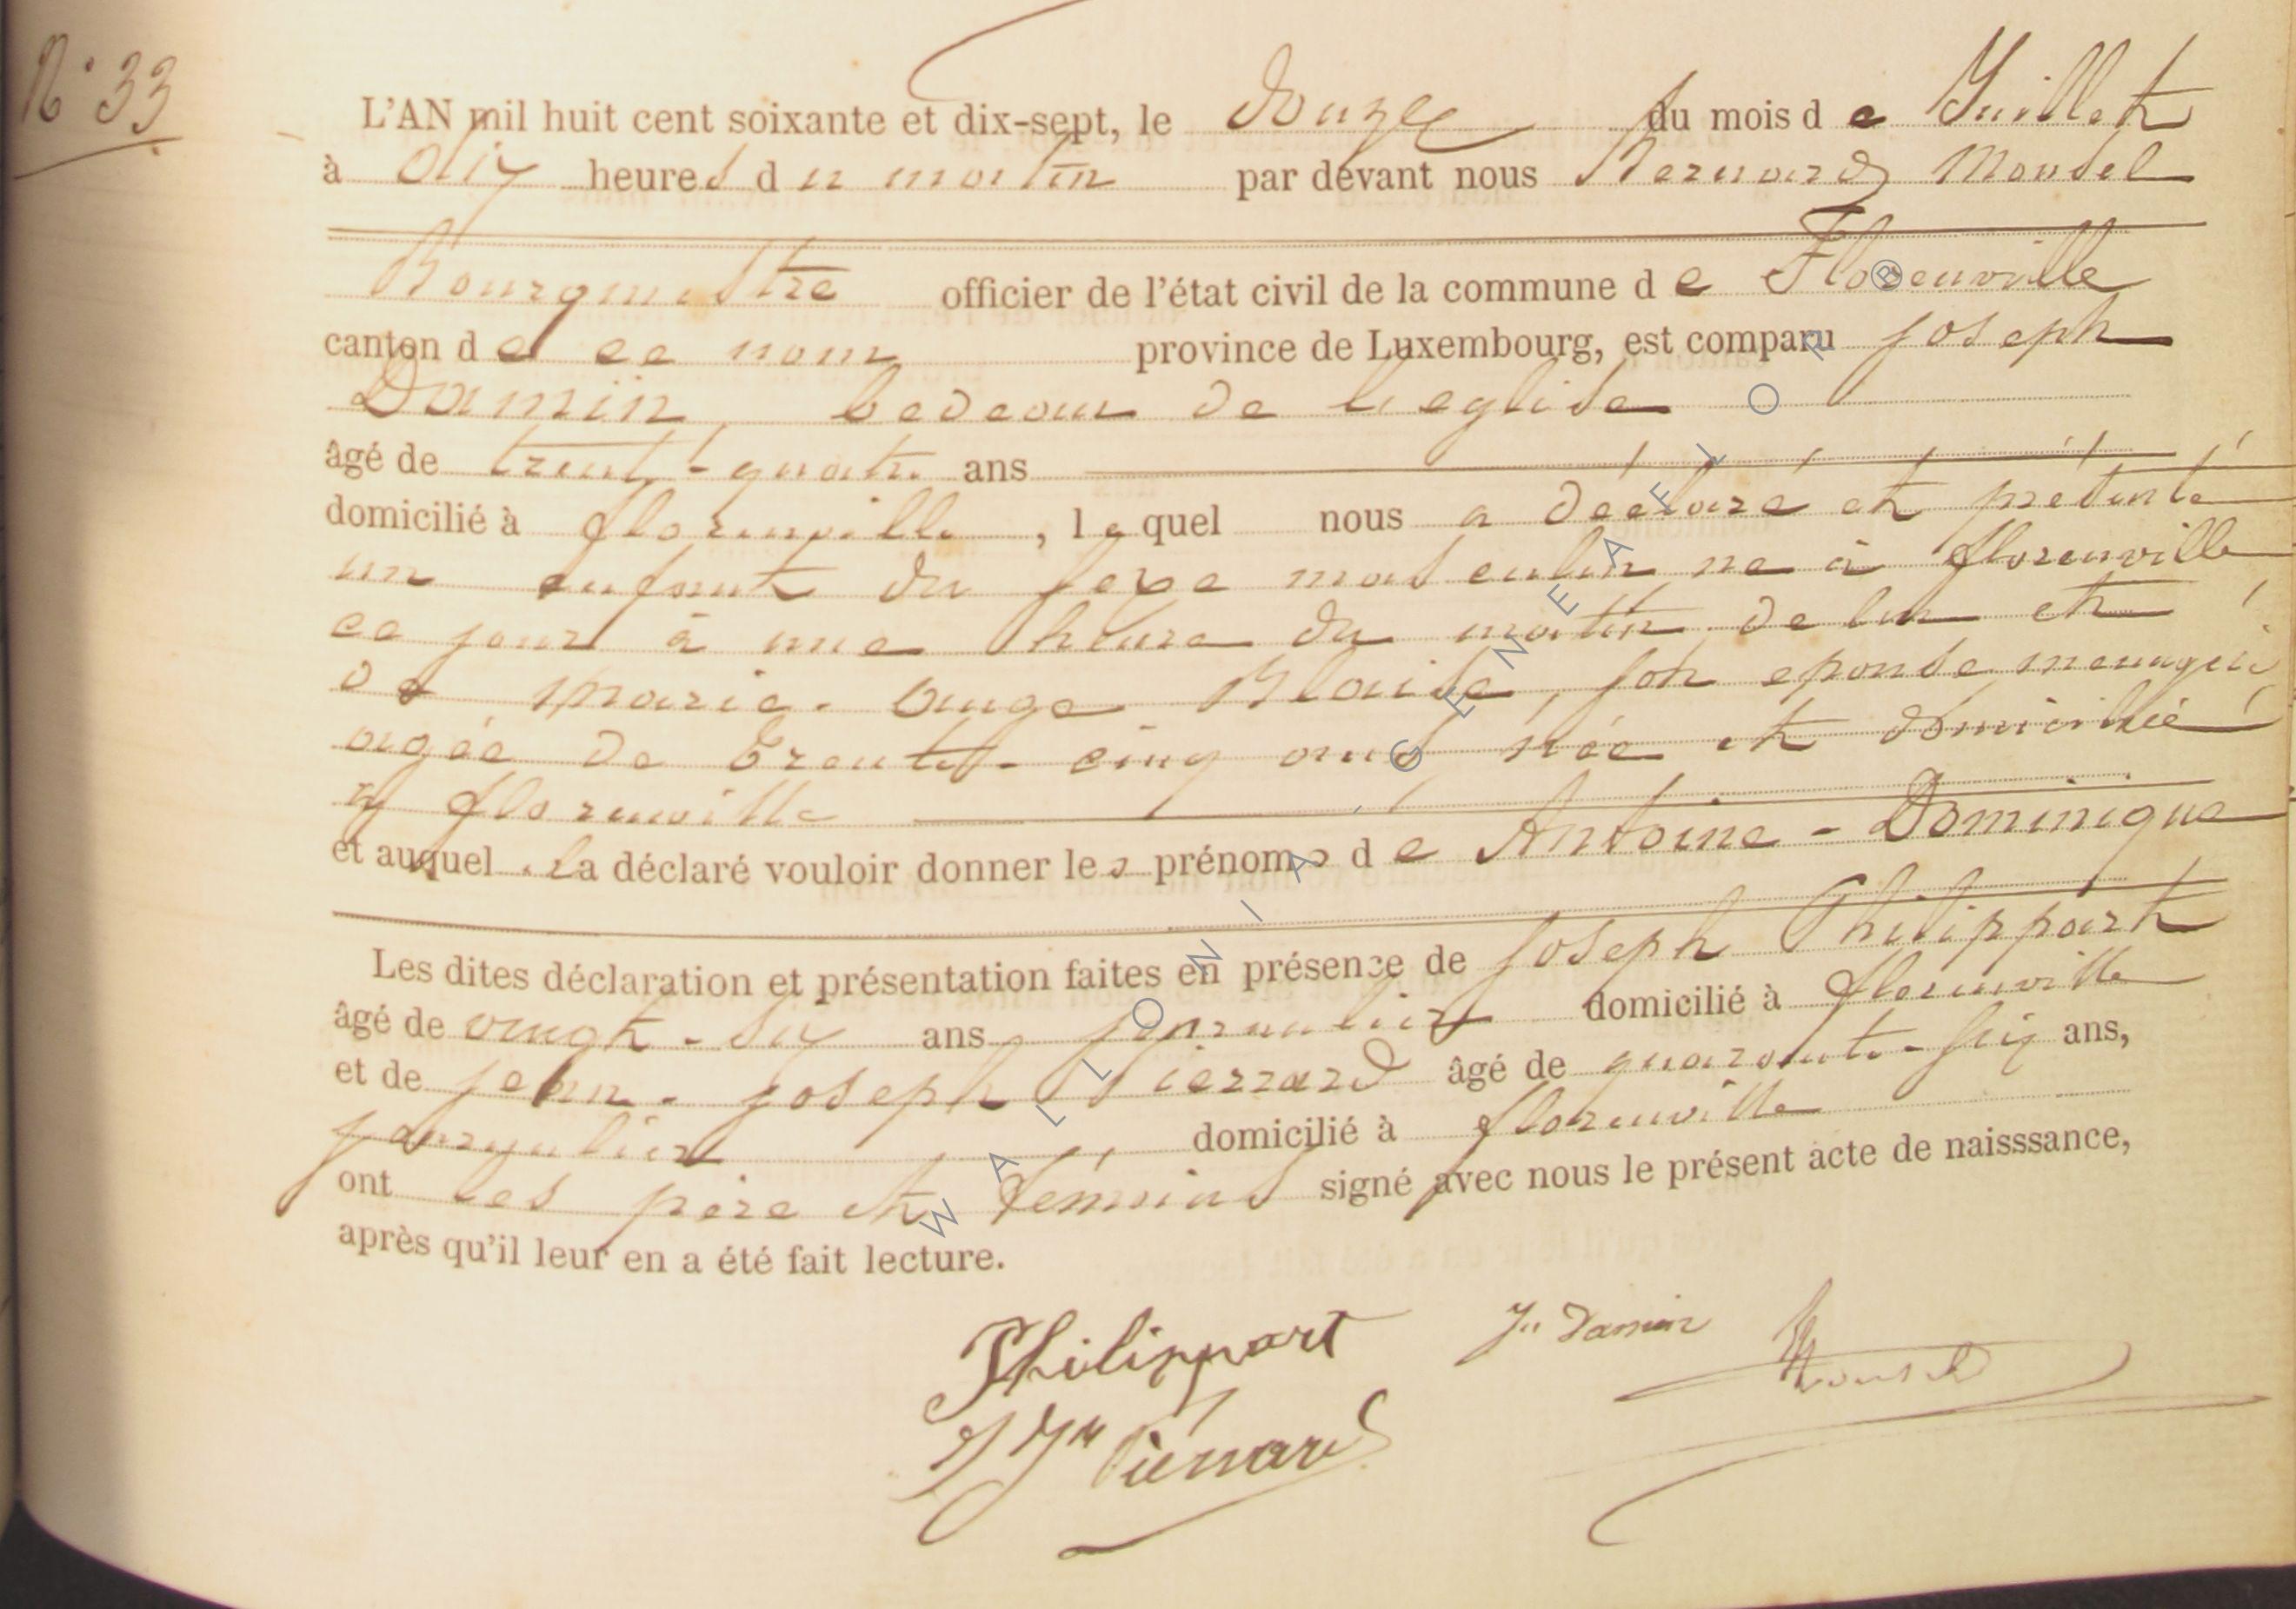 N° 33
L'AN mil huit cent soixante et dix-sept, le douze du mois de Juillet
à dix heures du matin par devant nous Bernard Mousel
Bourgmestre officier de l'état civil de la commune de Florenville
canton de ce nom province de Luxembourg, est comparu Joseph
Damin bedeau de l'eglise
âgé de trente-quatre ans
domicilié à florenville, lequel nous a déclaré et présenté
un enfant du sexe masculin né à florenville
ce jour à une heure du matin de lui et
de Marie-Ange Blaise, son epouse, menagère
agée de trente-cinq ans, née et domiciliée
à florenville
et auquel il a déclaré vouloir donner les prénoms de Antoine-Dominique
Les dites déclaration et présentation faites en présence de Joseph Philippart
âgé de vingt-six ans journalier domicilié à florenville
et de jean-joseph Pierrard âgé de quarante-six ans,
journalier domicilié à florenville
ont les père et témoins signé avec nous le présent acte de naisssance,
après qu'il leur en a été fait lecture.
Philippart Jh Damin Mousel
J Jh Pierrard
WALLONIA GENEALOOR ®